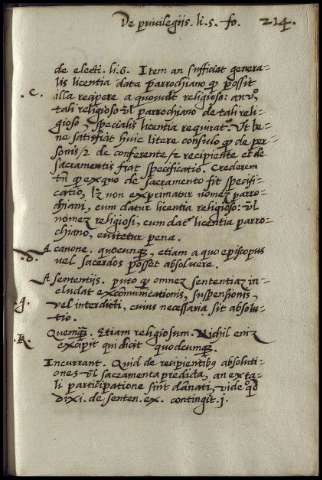 De privilegiis. li. 5. fo. 214.
de electi. li. 6. Item an sufficiat genera-
lis licentia data parrochiano qp possit
.c. illa recipere a quovis religioso: an
tali religioso vel parrochiano de tali reli-
gioso, specialis licentia requiratur. Ut be-
ne satisfiat huic litere consulo qp de per-
sonis, de conferente, recipiente et de
sacramentis fiat specificatio. Crederem
tn qp ex quo de sacramento fit specifi-
catio, lz non exprimatur nomen parro-
chiani, cum datur licentia religioso: vel
nomen religiosi, cum datur licentia parro-
chiano, evitetur pena.
.d. A canone. quocumque, etiam a quo episcopus
vel sacerdos posset absolvere.
A sententijs. puto qp omnes sententias in-
cludat excommunicationis, suspensionis,
vel interdicti, cuius necessaria sit absolu-
tio.
.K. Quemque. Etiam religiosum. Nichil enim
excipit qui dicit quodcumque.
Incurrant. Quid de recipientibus absoluti-
ones vel sacramenta predicta, an ex ta-
li participatione sint damnati, vide qd
dixi. de senten. ex. contingit. j.